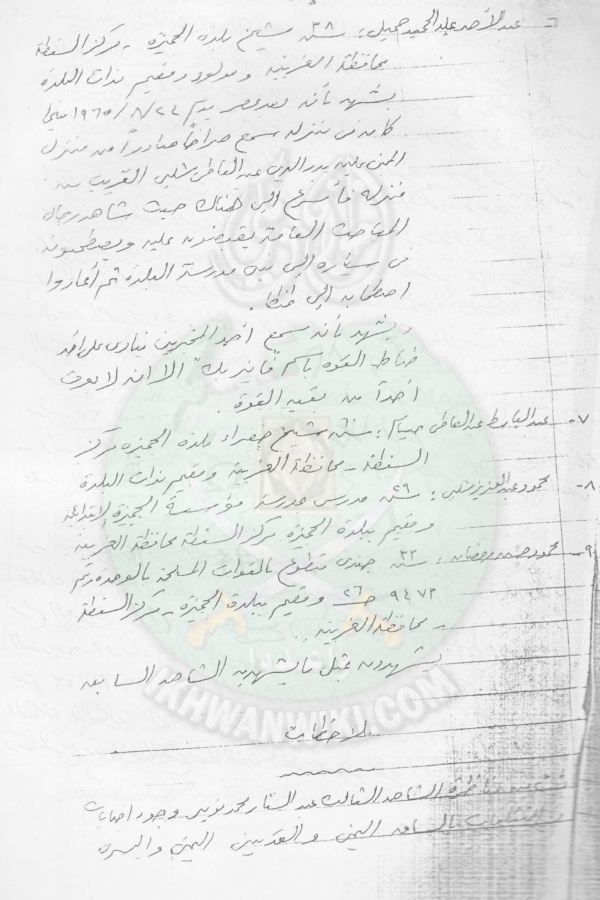 ٦- عبد الأحد عبد الحميد جميل : سنه ٣٨ شيخ بلدة الجميزة - مركز السنطة
محافظة الغربية ومولود ومقيم بذات البلدة
يشهد بأنه بعد عصر يوم ٢٤/٨/١٩٦٥ بينما
كان فى منزله سمع صراخا صادرا من منزل
المجنى عليه بدر الدين عبد العاطى شلبى القريب من
منزله فأسرع الى هناك حيث شاهد رجال
المباحث العامة يقبضون عليه ويصطحبونه
فى سيارة الى مدرسة البلدة ثم أعادوا
اصطحابه الى طنطا .
ويشهد بأنه سمع أحد المخبرين ينادى على أحد
ضباط القوة باسم " بك " الا انه لا يعرف
أحدا من بقية القوة .
٧- عبد الباسط عبد العاطى : سنه شيخ خفراء بلدة الجميزة مركز
السنطة - محافظة الغربية ومقيم بذات البلدة
٨- محمود عبد العزيز شلبى : سنه ٢٩ مدرس بمدرسة الجميزة الابتدائية
ومقيم ببلدة الجميزة مركز السنطة محافظة الغربية
٩- محمود رمضان : سنه ٢٢ جندى متطوع بالقوات المسلحة بالوحدة رقم
٩٤٧٣ جـ ٢٦ ومقيم ببلدة الجميزة - مركز السنطة
- محافظة الغربية .
يشهدون بمثل ما يشهد به الشاهد السابق
ملاحظات
الشاهد الثالث عبد الستار محمد وجود اصابات
بالساق اليمنى والقدمين اليمنى واليسرى
IKHWANWIKI.COM